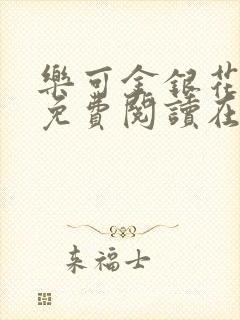 樂可金銀花
免費閱讀在
来福士